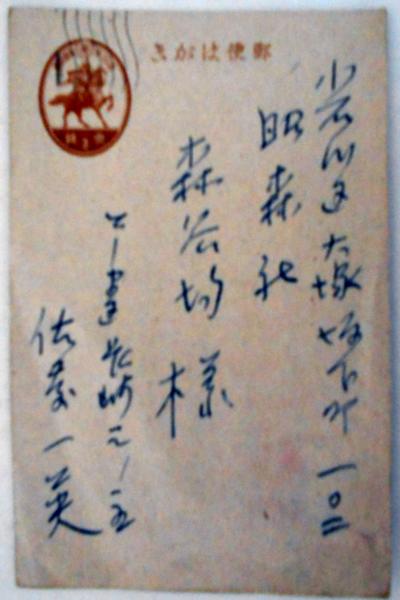 郵便はがき
小石川区大塚坂下町一〇二
昭森社
森谷均様
長崎二ノ
佐藤一英